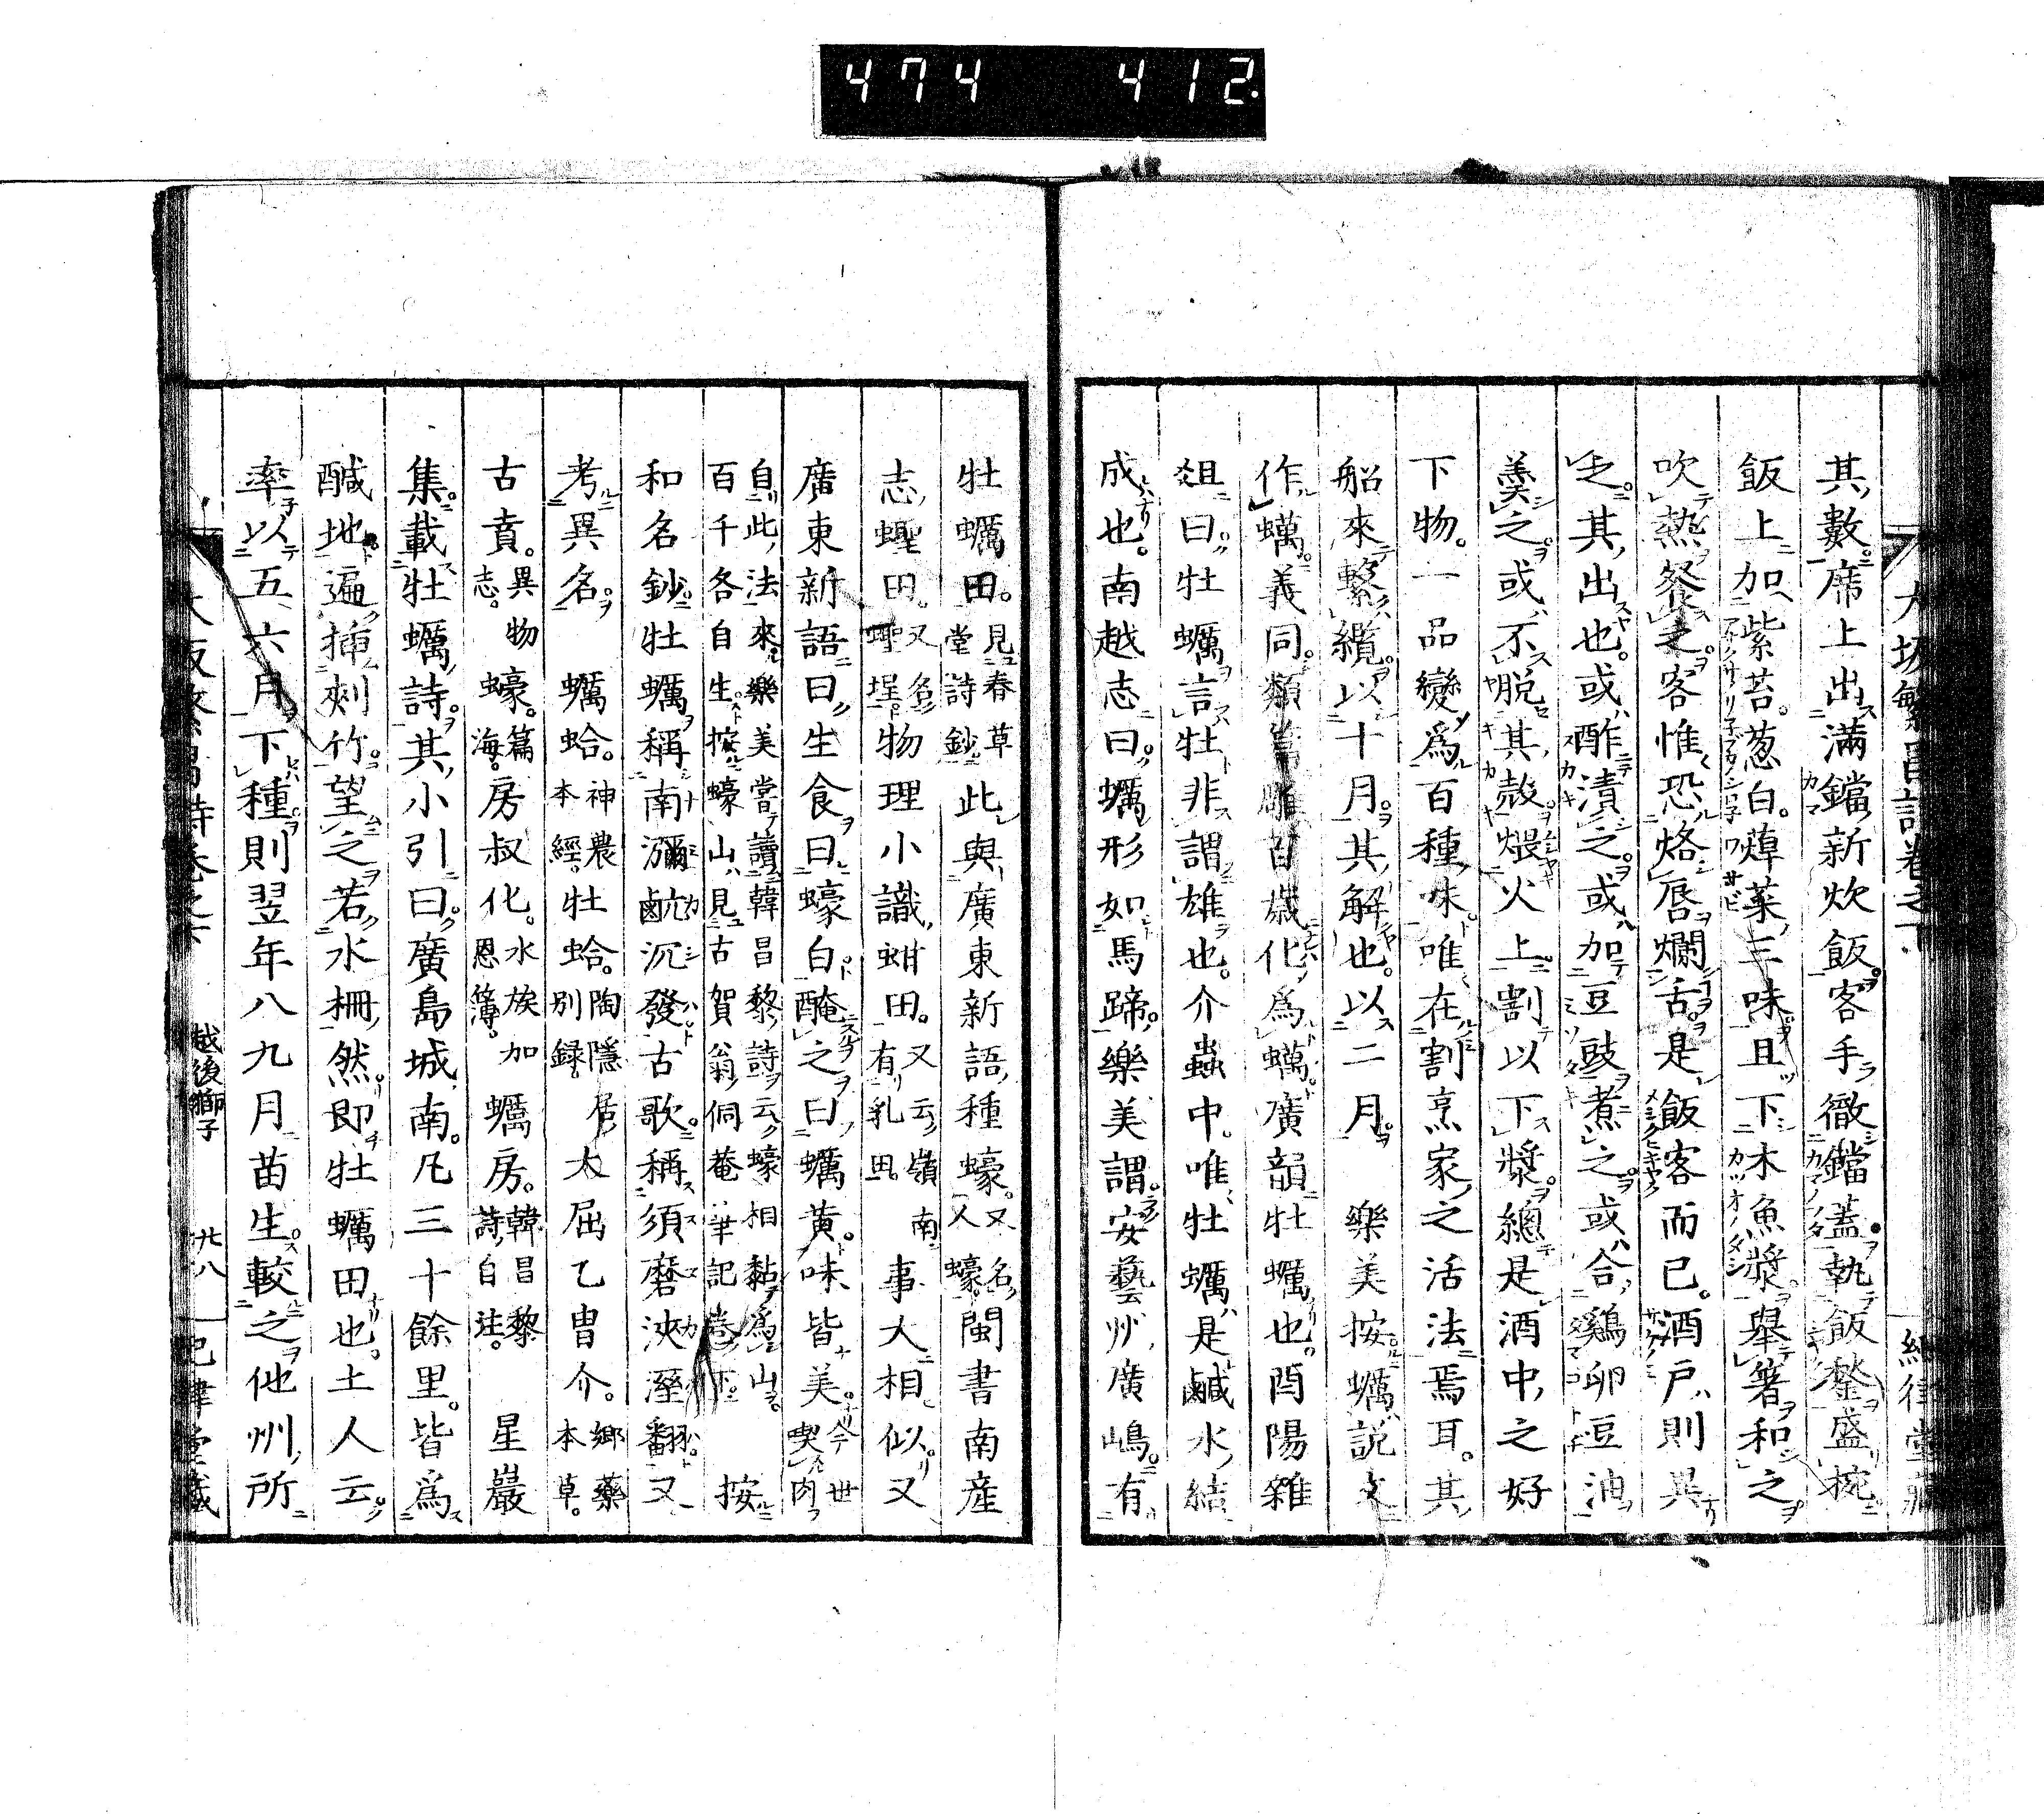 474 412
其數席上出滿鐺新炊飯客手徹鐺蓋執飯鍫盛椀
飯上加紫苔葱白煒菜三味且下木魚漿舉箸和之
吹熱餐之客惟恐烙唇爛舌是飯客而已酒戶則異
之其出也或酢漬之或加豆豉煮之或合鷄卵豆油
羹之或不脫其殼煨火上割以下漿總是酒中之好
下物一品變爲百種味唯在割烹家之活法焉耳其
船來繫纜以十月其解也以二月 樂美按蠣說文
作蠇義同類篇雕百歲化爲蠣廣韻牡蠣也酉陽雜
俎曰牡蠣言牡非謂雄也介蟲中唯牡蠣是鹹水結
成也南越志曰蠣形如馬蹄樂美謂安藝州廣嶋有
牡蠣田見春草堂詩鈔此與廣東新語種蠔又名蠔閩書南産
志蟶田又名蟶埕物理小識蚶田又云嶺南有乳田事大相似又
廣東新語曰生食曰蠔白醃之曰蠣黃味皆美今世喫肉
自此法來樂美嘗讀韓昌黎詩云蠔相黏爲山百千各自生按蠔山見古賀翁侗菴筆記卷下 按
和名鈔牡蠣稱南瀰鹵𠅙沉發古歌稱須磨浹溼翻又
考異名 蠣蛤神農本經牡蛤陶隱居別録太屈乙曺介鄉藥本草
古賁異物志蠔篇海房叔化水族加恩簿蠣房韓昌黎詩自注 星巖
集載牡蠣詩其小引曰廣島城南凡三十餘里皆爲
醎地遍插剡竹望之若水柵然即牡蠣田也土人云
率以五六月下種則翌年八九月苗生較之他州所
越後獅子 廿八